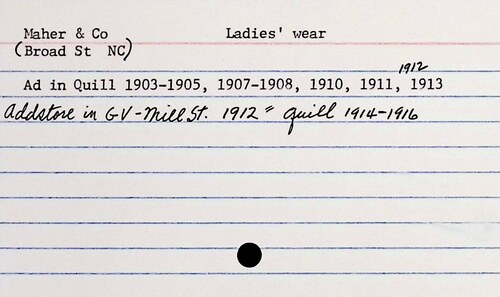 Maher & Co Ladies' wear
(Broad St NC)
1912
Ad in Quill 1903-1905, 1907-1908, 1910, 1911, 1913
Addstore in GV-Mill St. 1912 " Quill 1914-1916